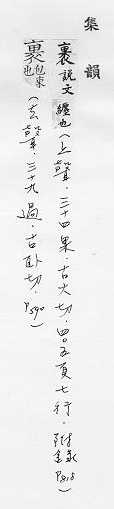 集韻
裹 說文纏也（上聲．三十四果．古火切．四〇五頁七行．附錄P818）
裹 包束也（去聲．三十九過．古臥切．P590）